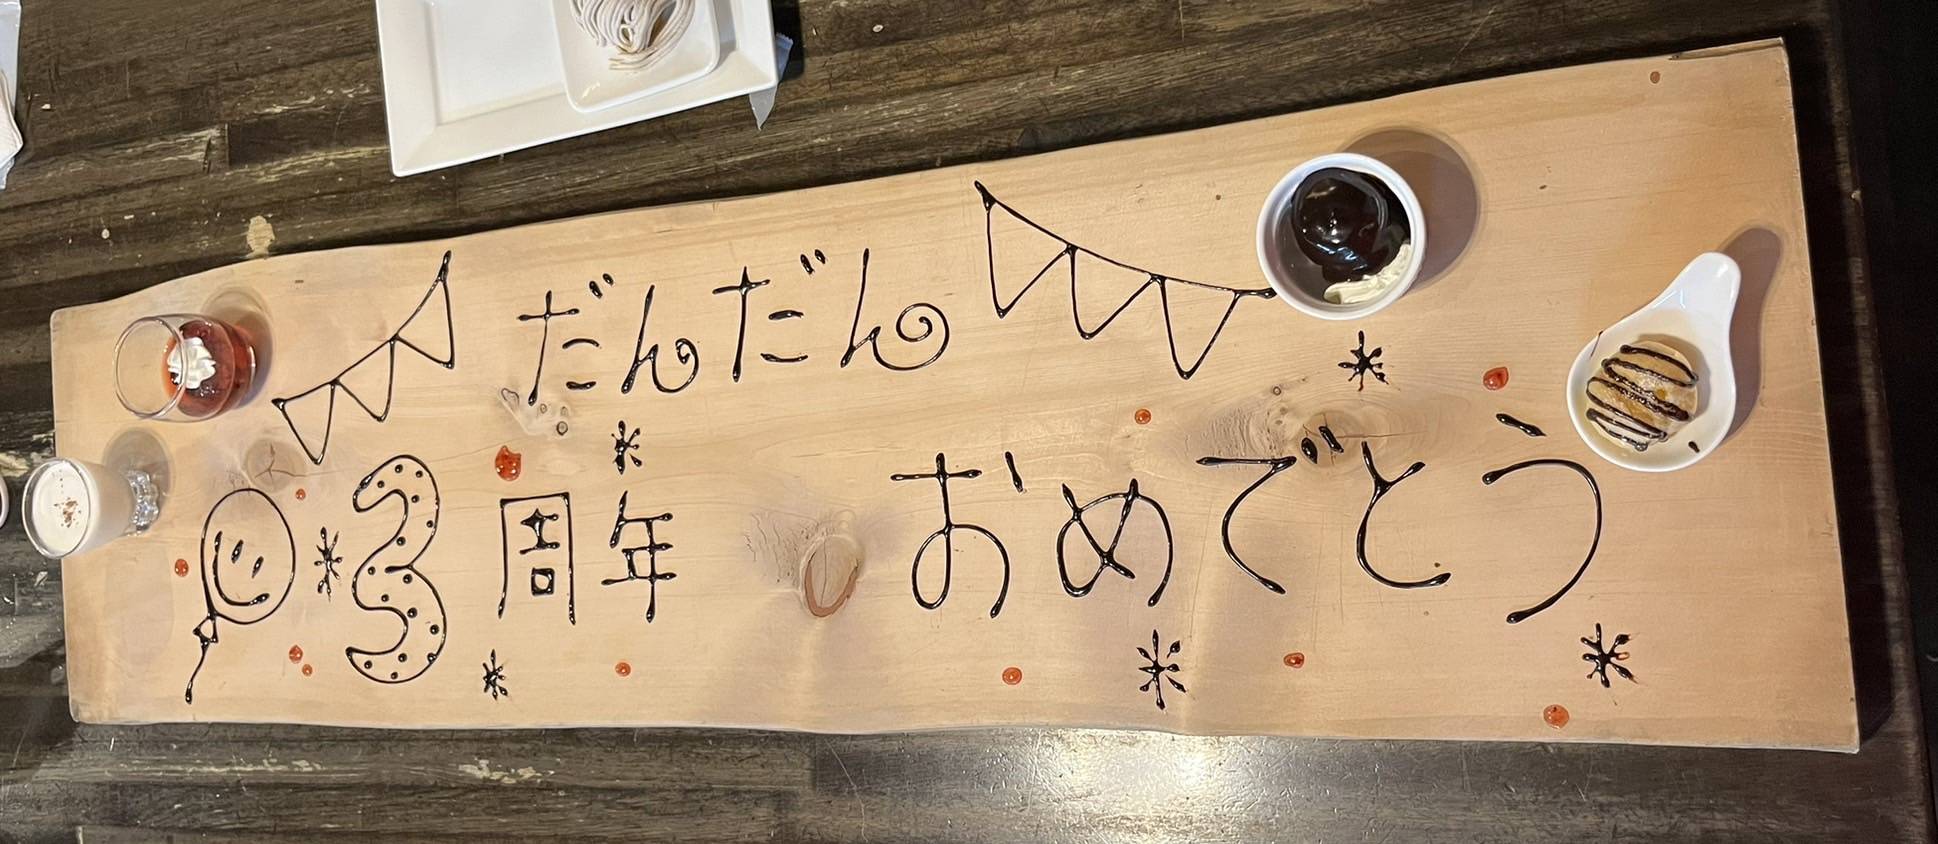 だんだん
3周年 おめでとう